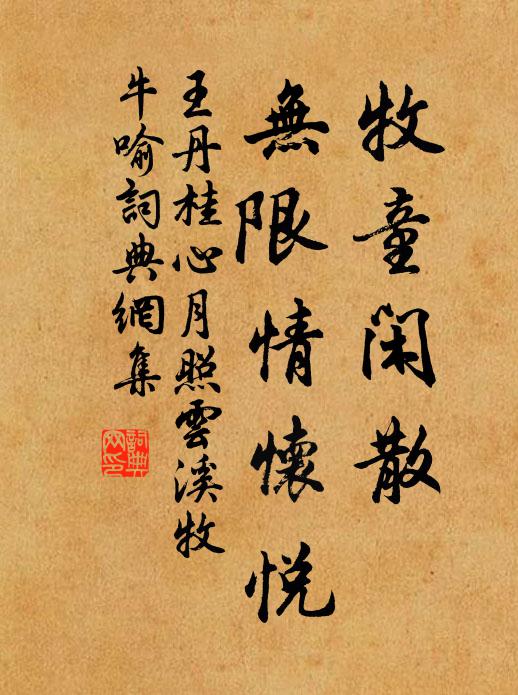 牧童閑散
無限情懷悅
王丹桂心月照雲溪牧
牛喻詞典網集
詞典网印